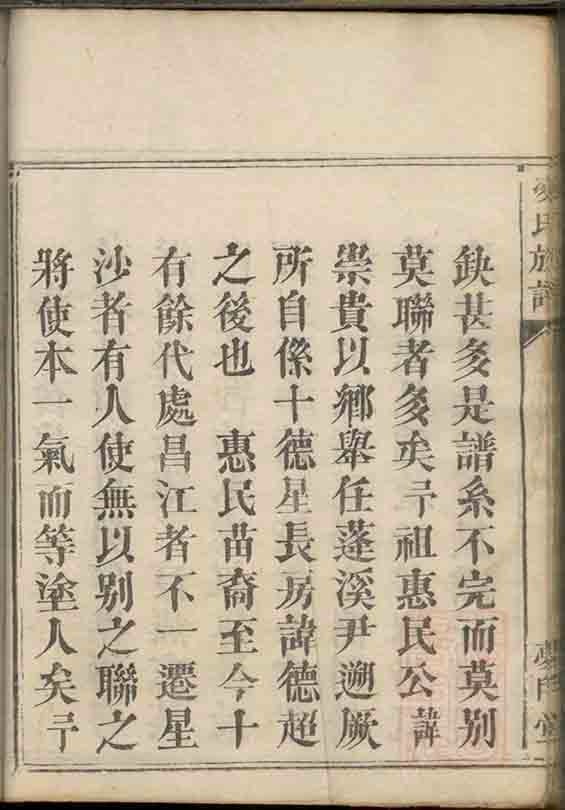 氏族譜
缺甚多是譜系不完而莫别
莫聯者多矣予祖惠民公諱
崇貴以鄉舉任蓬溪尹遡厥
所自係十德星長房諱德超
之後也　惠民苗裔至今十
有餘代處昌江者不一遷星
沙者有人使無以别之聯之
將使本一氣而等塗人矣予